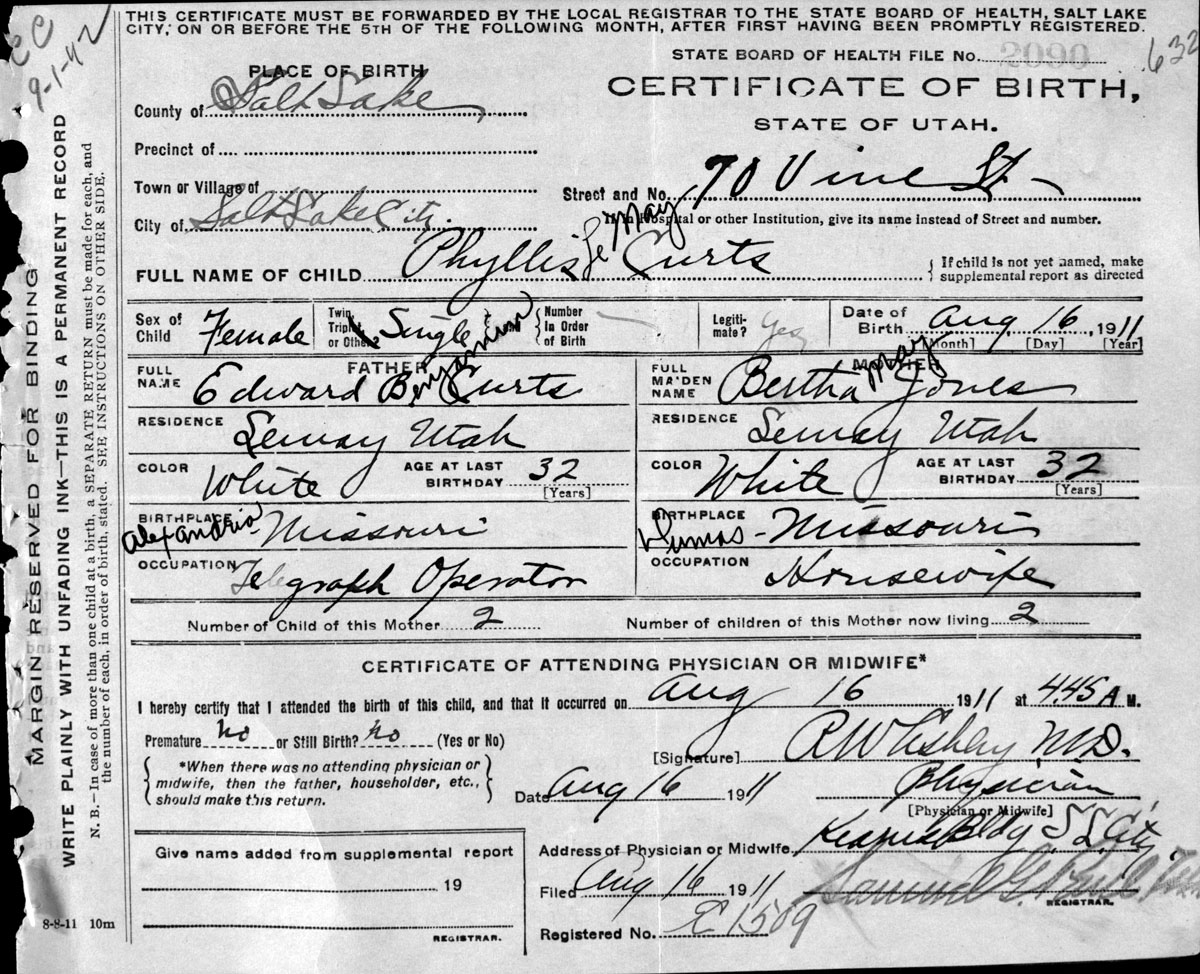 THIS CERTIFICATE MUST BE FORWARDED BY THE LOCAL REGISTRAR TO THE STATE BOARD OF HEALTH, SALT LAKE
CITY, ON OR BEFORE THE 5TH OF THE FOLLOWING MONTH, AFTER FIRST HAVING BEEN PROMPTLY REGISTERED.
EC
9-1-42
STATE BOARD OF HEALTH FILE No. 2090
632
PLACE OF BIRTH
CERTIFICATE OF BIRTH,
STATE OF UTAH.
County of Salt Lake
Precinct of
Town or Village of
Street and No. 70 Vine St
If in Hospital or other Institution, give its name instead of Street and number.
City of Salt Lake City.
May
FULL NAME OF CHILD Phyllis Curts
{ If child is not yet named, make
supplemental report as directed
Sex of Child Female
Twin, Triplet or Other? Single
Number In Order of Birth
Legitimate? Yes
Date of Birth Aug 16, 1911
[Month] [Day] [Year]
FATHER
FULL NAME Edward Benjamin Curts
RESIDENCE Lemay Utah
COLOR White AGE AT LAST BIRTHDAY 32 [Years]
BIRTHPLACE Alexandria - Missouri
OCCUPATION Telegraph Operator
MOTHER
FULL MAIDEN NAME Bertha May Jones
RESIDENCE Lemay Utah
COLOR White AGE AT LAST BIRTHDAY 32 [Years]
BIRTHPLACE Dumas - Missouri
OCCUPATION Housewife
Number of Child of this Mother 2 Number of children of this Mother now living 2
CERTIFICATE OF ATTENDING PHYSICIAN OR MIDWIFE*
I hereby certify that I attended the birth of this child, and that it occurred on Aug 16 1911 at 4.45 A M.
Premature No or Still Birth? No (Yes or No)
*When there was no attending physician or
midwife, then the father, householder, etc.,
should make this return.
[Signature] M.D.
Date Aug 16 1911 Physician
[Physician or Midwife]
Address of Physician or Midwife Kearns Bldg S. L. City
Filed Aug 16 1911
REGISTRAR.
Registered No. 1509
Give name added from supplemental report
19
REGISTRAR.
8-8-11 10m
MARGIN RESERVED FOR BINDING
WRITE PLAINLY WITH UNFADING INK—THIS IS A PERMANENT RECORD
N. B.—In case of more than one child at a birth, a SEPARATE RETURN must be made for each, and
the number of each, in order of birth, stated. SEE INSTRUCTIONS ON OTHER SIDE.